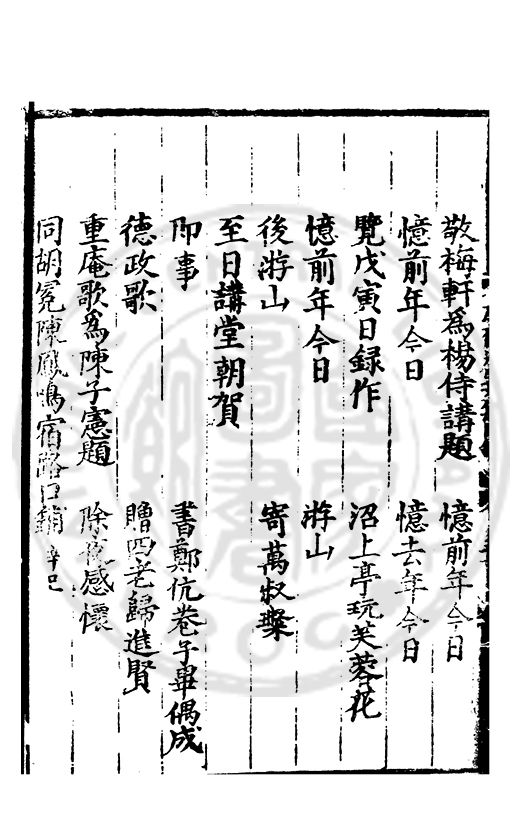 敬梅軒爲楊侍講題　憶前年今日
憶前年今日　憶去年今日
覽戊寅日録作　沼上亭玩芙蓉花
憶前年今日　游山
後游山　寄萬叔粲
至日講堂朝賀
即事　書鄭伉卷子畢偶成
德政歌　贈四老歸進賢
重庵歌爲陳子憲題　除夜感懷
同胡冕陳鳳鳴宿路口鋪